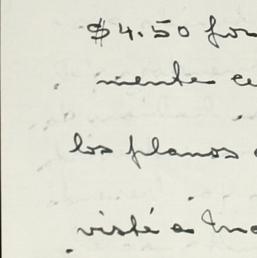 $4.50 for
mente ce
los planos
visté a Ma